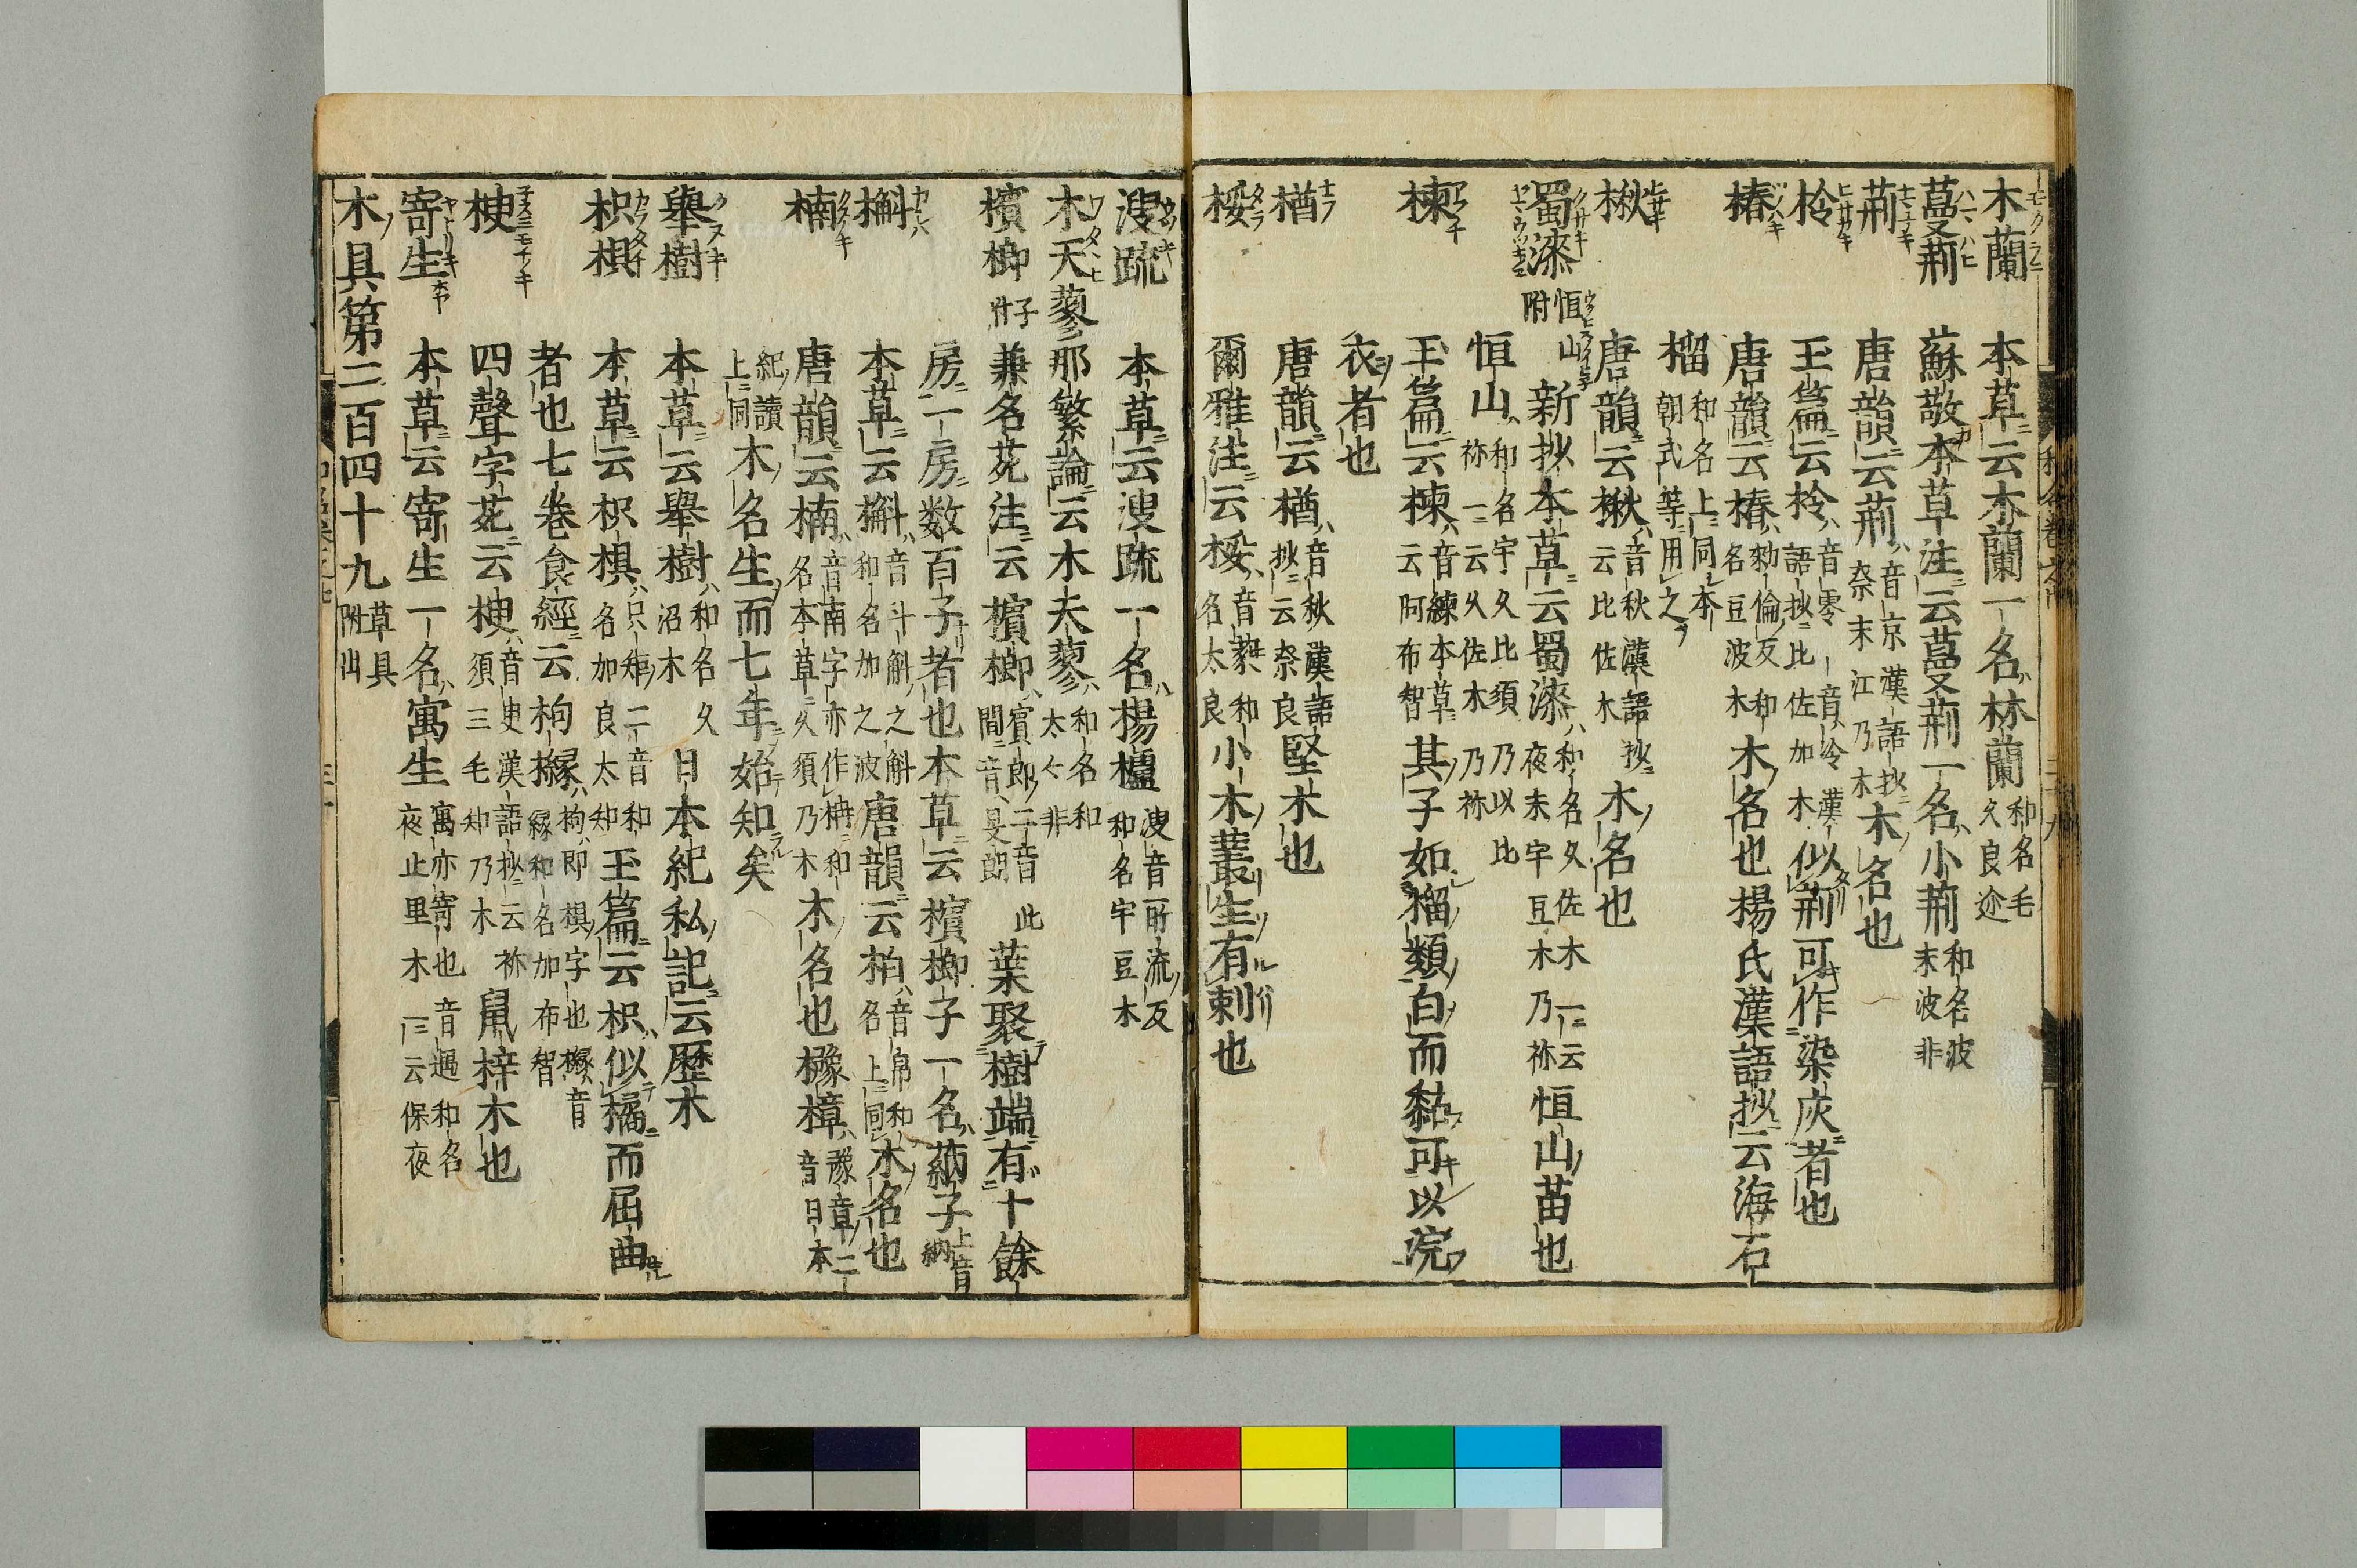 木蘭 本草云木蘭一名林蘭 和名毛久良邇
蔓荊 蘇敬本草注云蔓荊一名小荊 和名波末波非
荊 唐韻云荊 音京漢語抄奈末江乃木 木名也
柃 玉篇云柃 音零一音冷漢語抄比佐加木 似荊可作染灰者也
椿 唐韻云椿 勅倫反和名豆波木 木名也楊氏漢語抄云海石
榴 和名上同本朝式等用之
楸 唐韻云楸 音秋漢語抄云比佐木 木名也
蜀漆 恒山附 新抄本草云蜀漆 和名久佐木一云夜末宇豆木乃祢 恒山苗也
恒山 和名宇久比須乃以比祢一云久佐木乃祢
楝 玉篇云楝 音練本草云阿布智 其子如榴類白而黏可以浣
衣者也
楢 唐韻云楢 音秋漢語抄云奈良 堅木也
桵 爾雅注云桵 音蕤和名太良 小木叢生有刺也
溲疏 本草云溲疏一名楊櫨 溲音所流反和名宇豆木
木天蓼 耶繁論云木天蓼 和名和太々非
檳榔 子附 兼名苑注云檳榔 賓郎二音此間音旻朗 葉聚樹端有十餘
房一房数百子者也本草云檳榔子一名蒳子 上音納
槲 本草云槲 音斗斛之斛和名加之波 唐韻云柏 音帛和名上同 木名也
楠 唐韻云楠 音南字亦作枏和名本草久須乃木 木名也櫲樟 豫章二音日本
紀讀上同 木名生而七年始知矣
舉樹 本草云舉樹 和名久沼木 日本紀私記云歴木
枳椇 本草云枳椇 只矩二音和名加良太知 玉篇云枳似橘而屈曲
者也七卷食經云枸櫞 枸即椇字也櫞音縁和名加布智
楰 四聲字苑云楰 音臾漢語抄云祢須三毛知乃木 鼠梓木也
寄生 本草云寄生一名寓生 寓亦寄也音遇和名夜止里木一云保夜
木具第二百四十九 草具附出